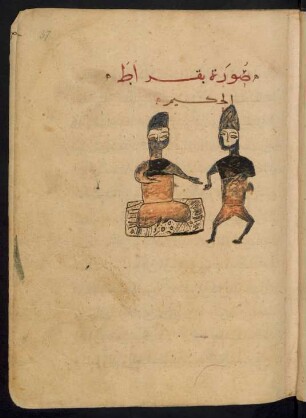 صُورَة بقراط
الحكيم